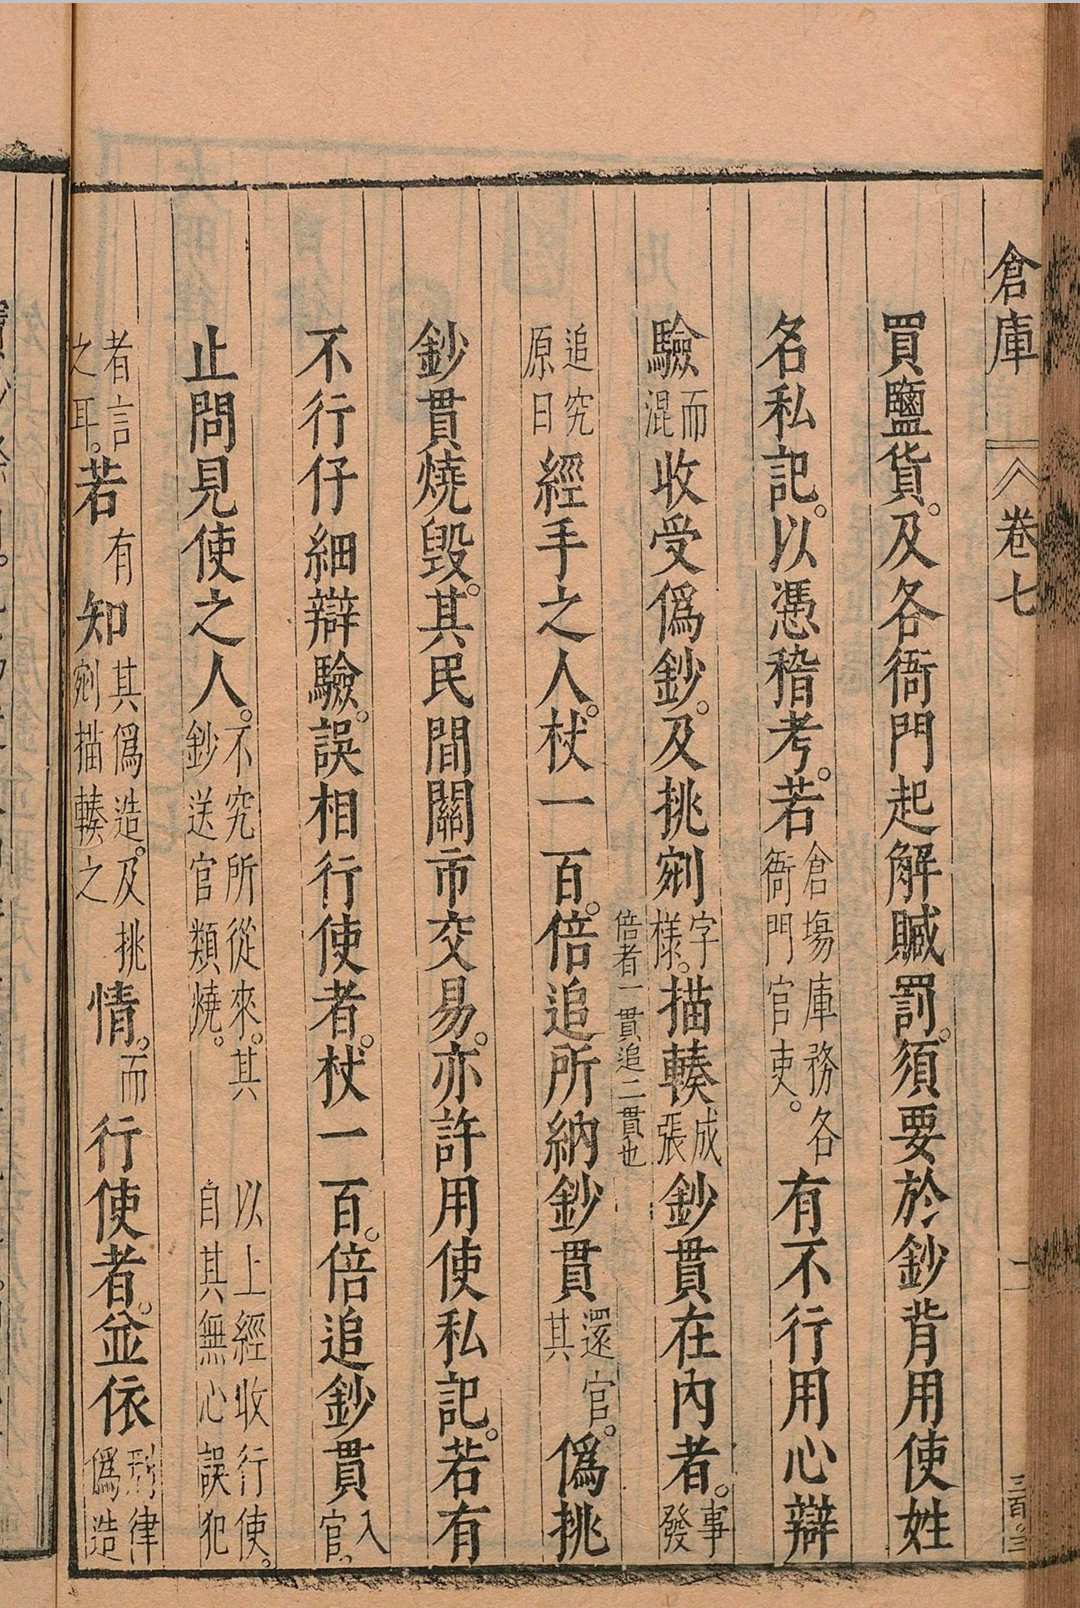 倉庫 卷七 二 三百三
買鹽貨。及各衙門起解贓罰。須要於鈔背用使姓
名私記。以憑稽考。若倉塲庫務各衙門官吏。有不行用心辯
驗而混收受僞鈔。及挑剜字樣。描輳成張鈔貫在內者。事發
追究原日經手之人。杖一百。倍追所納鈔貫還官。其僞挑
倍者一貫追二貫也
鈔貫燒毀。其民間關市交易。亦許用使私記。若有
不行仔細辯驗。誤相行使者。杖一百。倍追鈔貫入官。
止問見使之人。不究所從來。其鈔送官類燒。以上經收行使。自其無心誤犯
者言之耳。若有知其僞造。及挑剜描輳之情。而行使者。並依刑律僞造